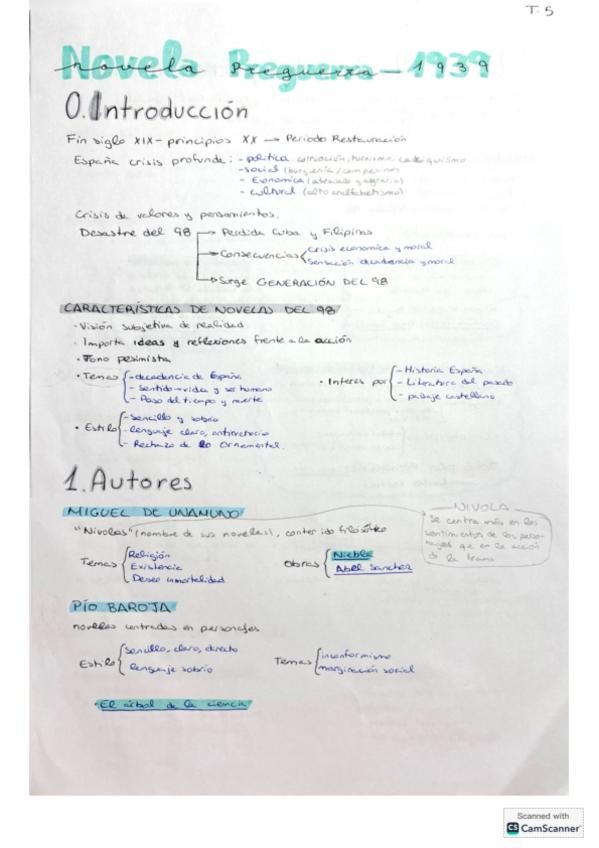 T. 5
Novela Preguerra - 1939
0. Introducción
Fin siglo XIX - principios XX → Periodo Restauración
España crisis profunda: - política corrupción, turnismo, caciquismo
- social (burguesía / campesinos
- Economica (atrasada y agraria)
- cultural (alto analfabetismo)
Crisis de valores y pensamientos.
Desastre del 98 → Perdida Cuba y Filipinas
→ Consecuencias Crisis economica y moral
Sensación decadencia y moral
→ Surge GENERACIÓN DEL 98
CARACTERÍSTICAS DE NOVELAS DEL 98
· Visión subjetiva de realidad
· Importa ideas y reflexiones frente a la acción
· Tono pesimista
· Temas - decadencia de España
- Sentido vida y ser humano
- Paso del tiempo y muerte
· Interes por - Historia España
- Literatura del pasado
- paisaje castellano
· Estilo - Sencillo y sobrio
- lenguaje claro, antirretorico
- Rechazo de lo ornamental.
1. Autores
MIGUEL DE UNAMUNO
"Nivolas" (nombre de sus novelas), contenido filosófico
NIVOLA
Se centra más en los
sentimientos de los perso-
najes que en la acción
de la trama
Temas Religión
Existencia
Deseo inmortalidad
Obras Niebla
Abel Sanchez
PÍO BAROJA
novelas centradas en personajes
Estilo sencillo, claro, directo
lenguaje sobrio
Temas inconformismo
marginación social
· El árbol de la ciencia
Scanned with
CS CamScanner